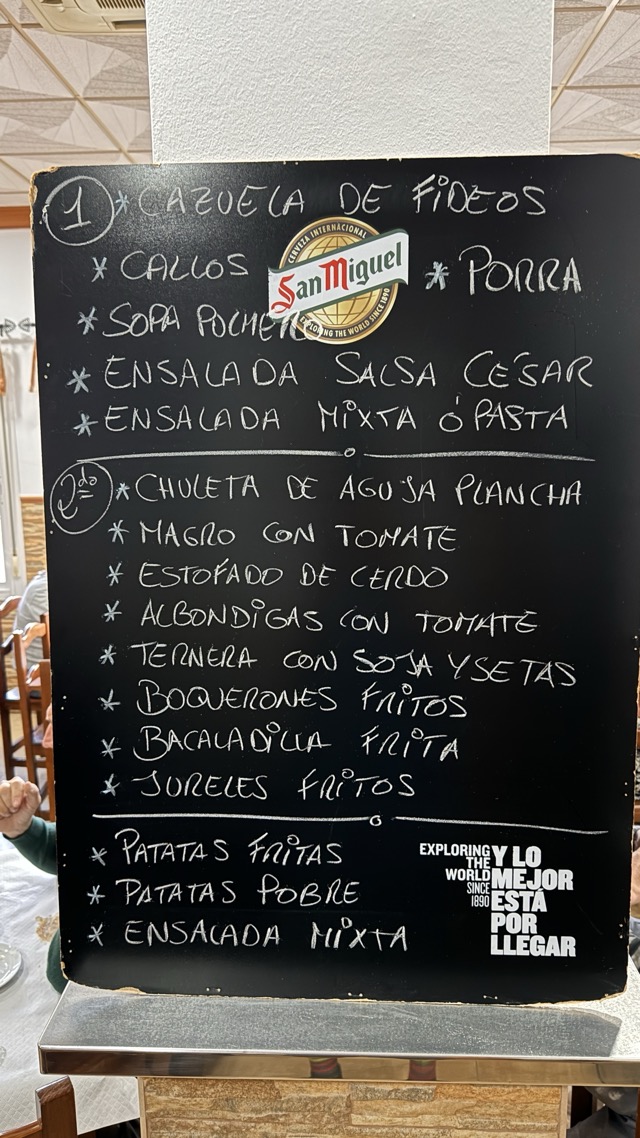 1 * CAZUELA DE FIDEOS
* CALLOS
CERVEZA INTERNACIONAL
San Miguel
EXPLORING THE WORLD SINCE 1890
* PORRA
* SOPA
* ENSALADA SALSA CÉSAR
* ENSALADA MIXTA Ó PASTA
2do * CHULETA DE AGUJA PLANCHA
* MAGRO CON TOMATE
* ESTOFADO DE CERDO
* ALBONDIGAS CON TOMATE
* TERNERA CON SOJA Y SETAS
* BOQUERONES FRITOS
* BACALADILLA FRITA
* JURELES FRITOS
* PATATAS FRITAS
* PATATAS POBRE
* ENSALADA MIXTA
EXPLORING
THE
WORLD
SINCE
1890
Y LO
MEJOR
ESTÁ
POR
LLEGAR